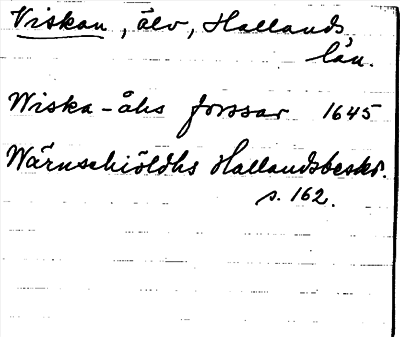 Viskan, älv, Hallands
län.
Wiska-åhs forssar 1645
Wärnschiöldhs Hallandsbeskr.
s. 162.